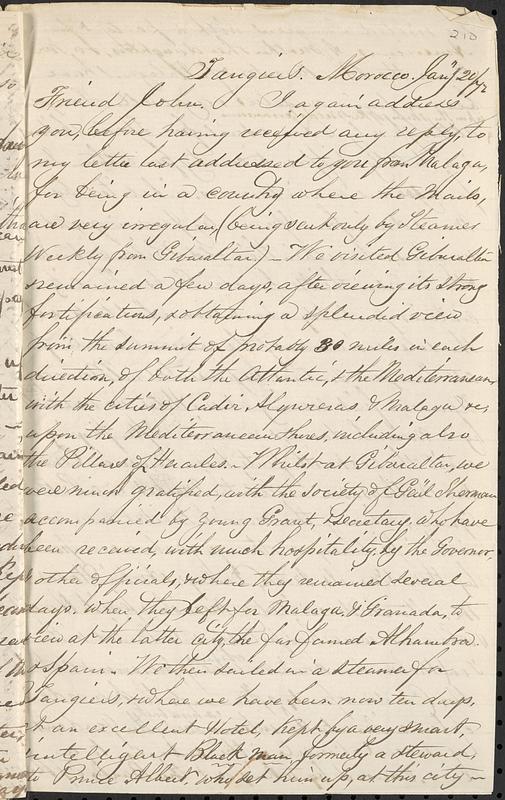 210
Tangiers. Morocco. Jany 20/72
Friend John. I again address
you, before having received any reply, to
my letter last addressed to you from Malaga,
for being in a country where the Mails,
are very irregular, (being sent only by Steamer
Weekly from Gibraltar) — We visited Gibraltar
& remained a few days, after viewing its strong
fortifications, & obtaining a splendid view
from the summit of probably 30 miles in each
direction, of both the Atlantic, & the Mediterranean,
with the cities of Cadiz, Algeceras & Malaga &c,
upon the Mediterranean shores, including also
the Pillars of Hercules. — Whilst at Gibraltar, we
were much gratified, with the society of Genl Sherman
accompanied by young Grant, & secretary, who have
been received, with much hospitality, by the Governor,
& other officials, & where they remained several
days. When they left for Malaga, & Granada, to
view at the latter city, the far famed Alhambra
of Spain. We then sailed in a steamer for
Tangiers, & where we have been now ten days,
at an excellent Hotel, kept by a very smart,
intelligent Black man, formerly a steward,
to Prince Albert, who set him up, at this city —